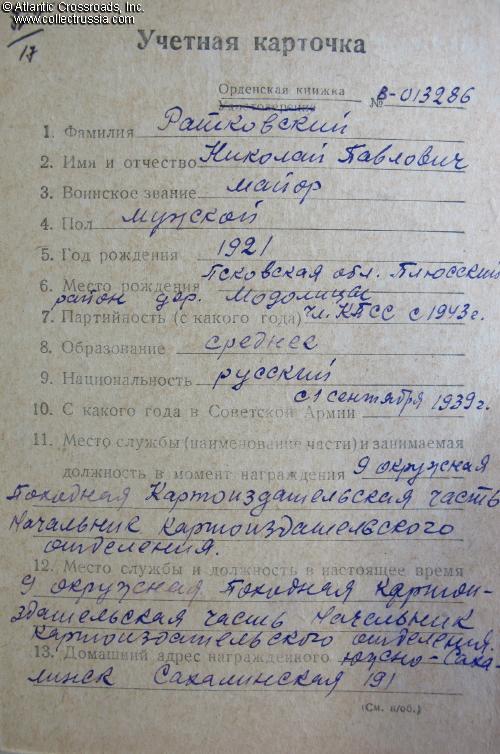 © Atlantic Crossroads, Inc.
www.collectrussia.com
17
Учетная карточка
Орденская книжка
Удостоверения № В-013286
1. Фамилия Ратковский
2. Имя и отчество Николай Павлович
3. Воинское звание майор
4. Пол мужской
5. Год рождения 1921
6. Место рождения Псковская обл. Плюсский
район дер. Модолицы
7. Партийность (с какого года) Чл. КПСС с 1943 г.
8. Образование среднее
9. Национальность русский
10. С какого года в Советской Армии с 1 сентября 1939 г.
11. Место службы (наименование части) и занимаемая
должность в момент награждения 9 окружная
Походная Картоиздательская часть
Начальник картоиздательского
отделения.
12. Место службы и должность в настоящее время
9 окружная Походная Картои-
здательская часть Начальник
Картоиздательского отделения.
13. Домашний адрес награжденного Южно-Саха-
линск Сахалинская 191
(См. н/об.)